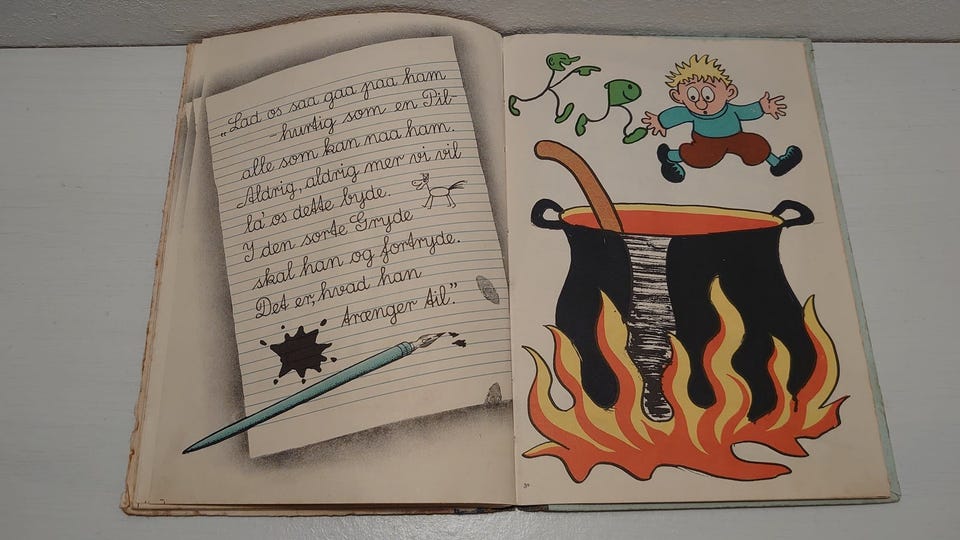 „Lad os saa gaa paa ham
- hurtig som en Pil-
alle som kan naa ham.
Aldrig, aldrig mer vi vil
la' os dette byde.
I den sorte Gryde
skal han og fortryde.
Det er, hvad han
trænger til.”